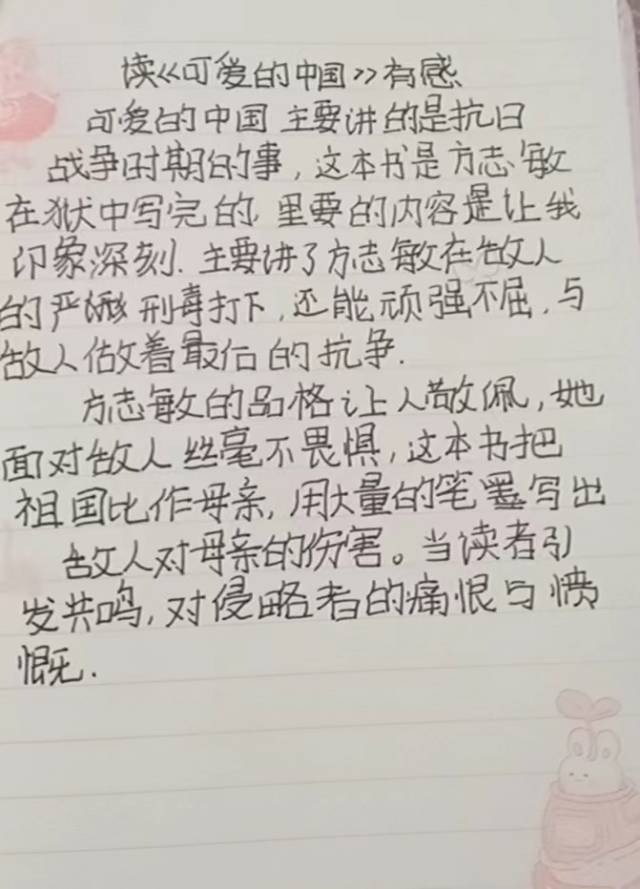 读《可爱的中国》有感
可爱的中国 主要讲的是抗日
战争时期的事，这本书是方志敏
在狱中写完的 里要的内容是让我
印象深刻. 主要讲了方志敏在敌人
的严 刑毒打下，还能顽强不屈，与
敌人做着最后的抗争.
方志敏的品格让人敬佩，她
面对敌人丝毫不畏惧，这本书把
祖国比作母亲，用大量的笔墨写出
敌人对母亲的伤害。当读者引
发共鸣，对侵略者的痛恨与愤
慨.